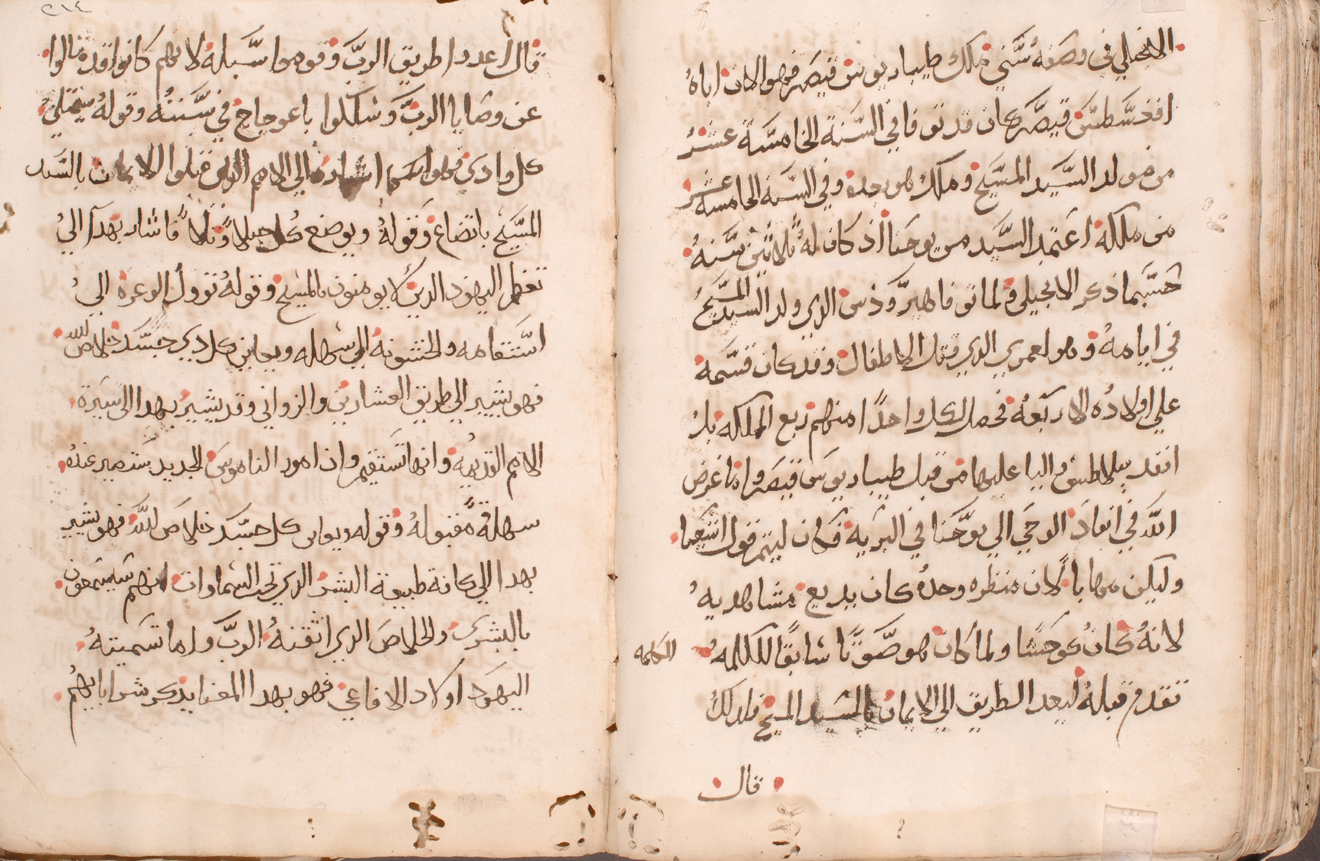 الانجيلي في بصفه سني ملك طيباريوس قيصر فهو الان اباه
اغسطس قيصر كان قد توفا في السنة الخامسة عشر
من مولد السيد المسيح وملك هو بعده وفي السنة الخامسة عشر
من ملكه اعتمد السيد من يوحنا اذ كان له ثلاثين سنه
حسبما ذكر الانجيلي ولما توفا هيرودس الذي ولد السيد المسيح
في ايامه وهو الذي قتل الاطفال وقد كان قسمه
علي اولاده الاربعه فحصل لكل واحدًا منهم ربع المملكه
انفد بيلاطس واليا عليها من قبل طيباريوس قيصر واما غرض
الله في انفاد الوحي الي يوحنا في البريه فكان ليتم قول اشعيا
وليكن مهابا لان منظره وحده كان بديع مشاهديه
لانه كان كوحشا ولما كان هو صوتًا سابقًا للكلمه
الكلمه
تقدم قبله ليعد الطريق الي الايمان بالسيد المسيح فلدلك
قال
٢١٤
قال اعددوا طريق الرب وقوموا سبله لانهم كانوا قد مالوا
عن وصايا الرب وسلكلوا باعوجاج في سننه وقوله سيمتلي
كل وادي اشاره الي الامم الذين قبلوا الايمان بالسيد
المسيح باتضاع وقوله ويوضع كل جبلا وتلا فاشار بهدا الي
تعظم اليهود الدين لا يومنون بالمسيح وقوله تووك الوعره الي
استقامه والخشونه الي سهله ويعاين كل دي جسد خلاص الله
فهو يشير الي طريق العشارين والزواني وقد يشير بهدا الي سيرة
الامم القديمه وانها تستقيم وان امور الناموس الجديد ستصير عنده
سهلة مقبوله وقوله ويعاين كل جسد خلاص الله فهو يشير
بهدا الي كافة طبيعة البشر الذي تحت السماوات انهم سيسمعون
بالبشري والخلاص الذي اتقنه الرب واما تسميته
اليهود اولاد الافاعي فهو بهدا المعنا يذكر شر ابايهم